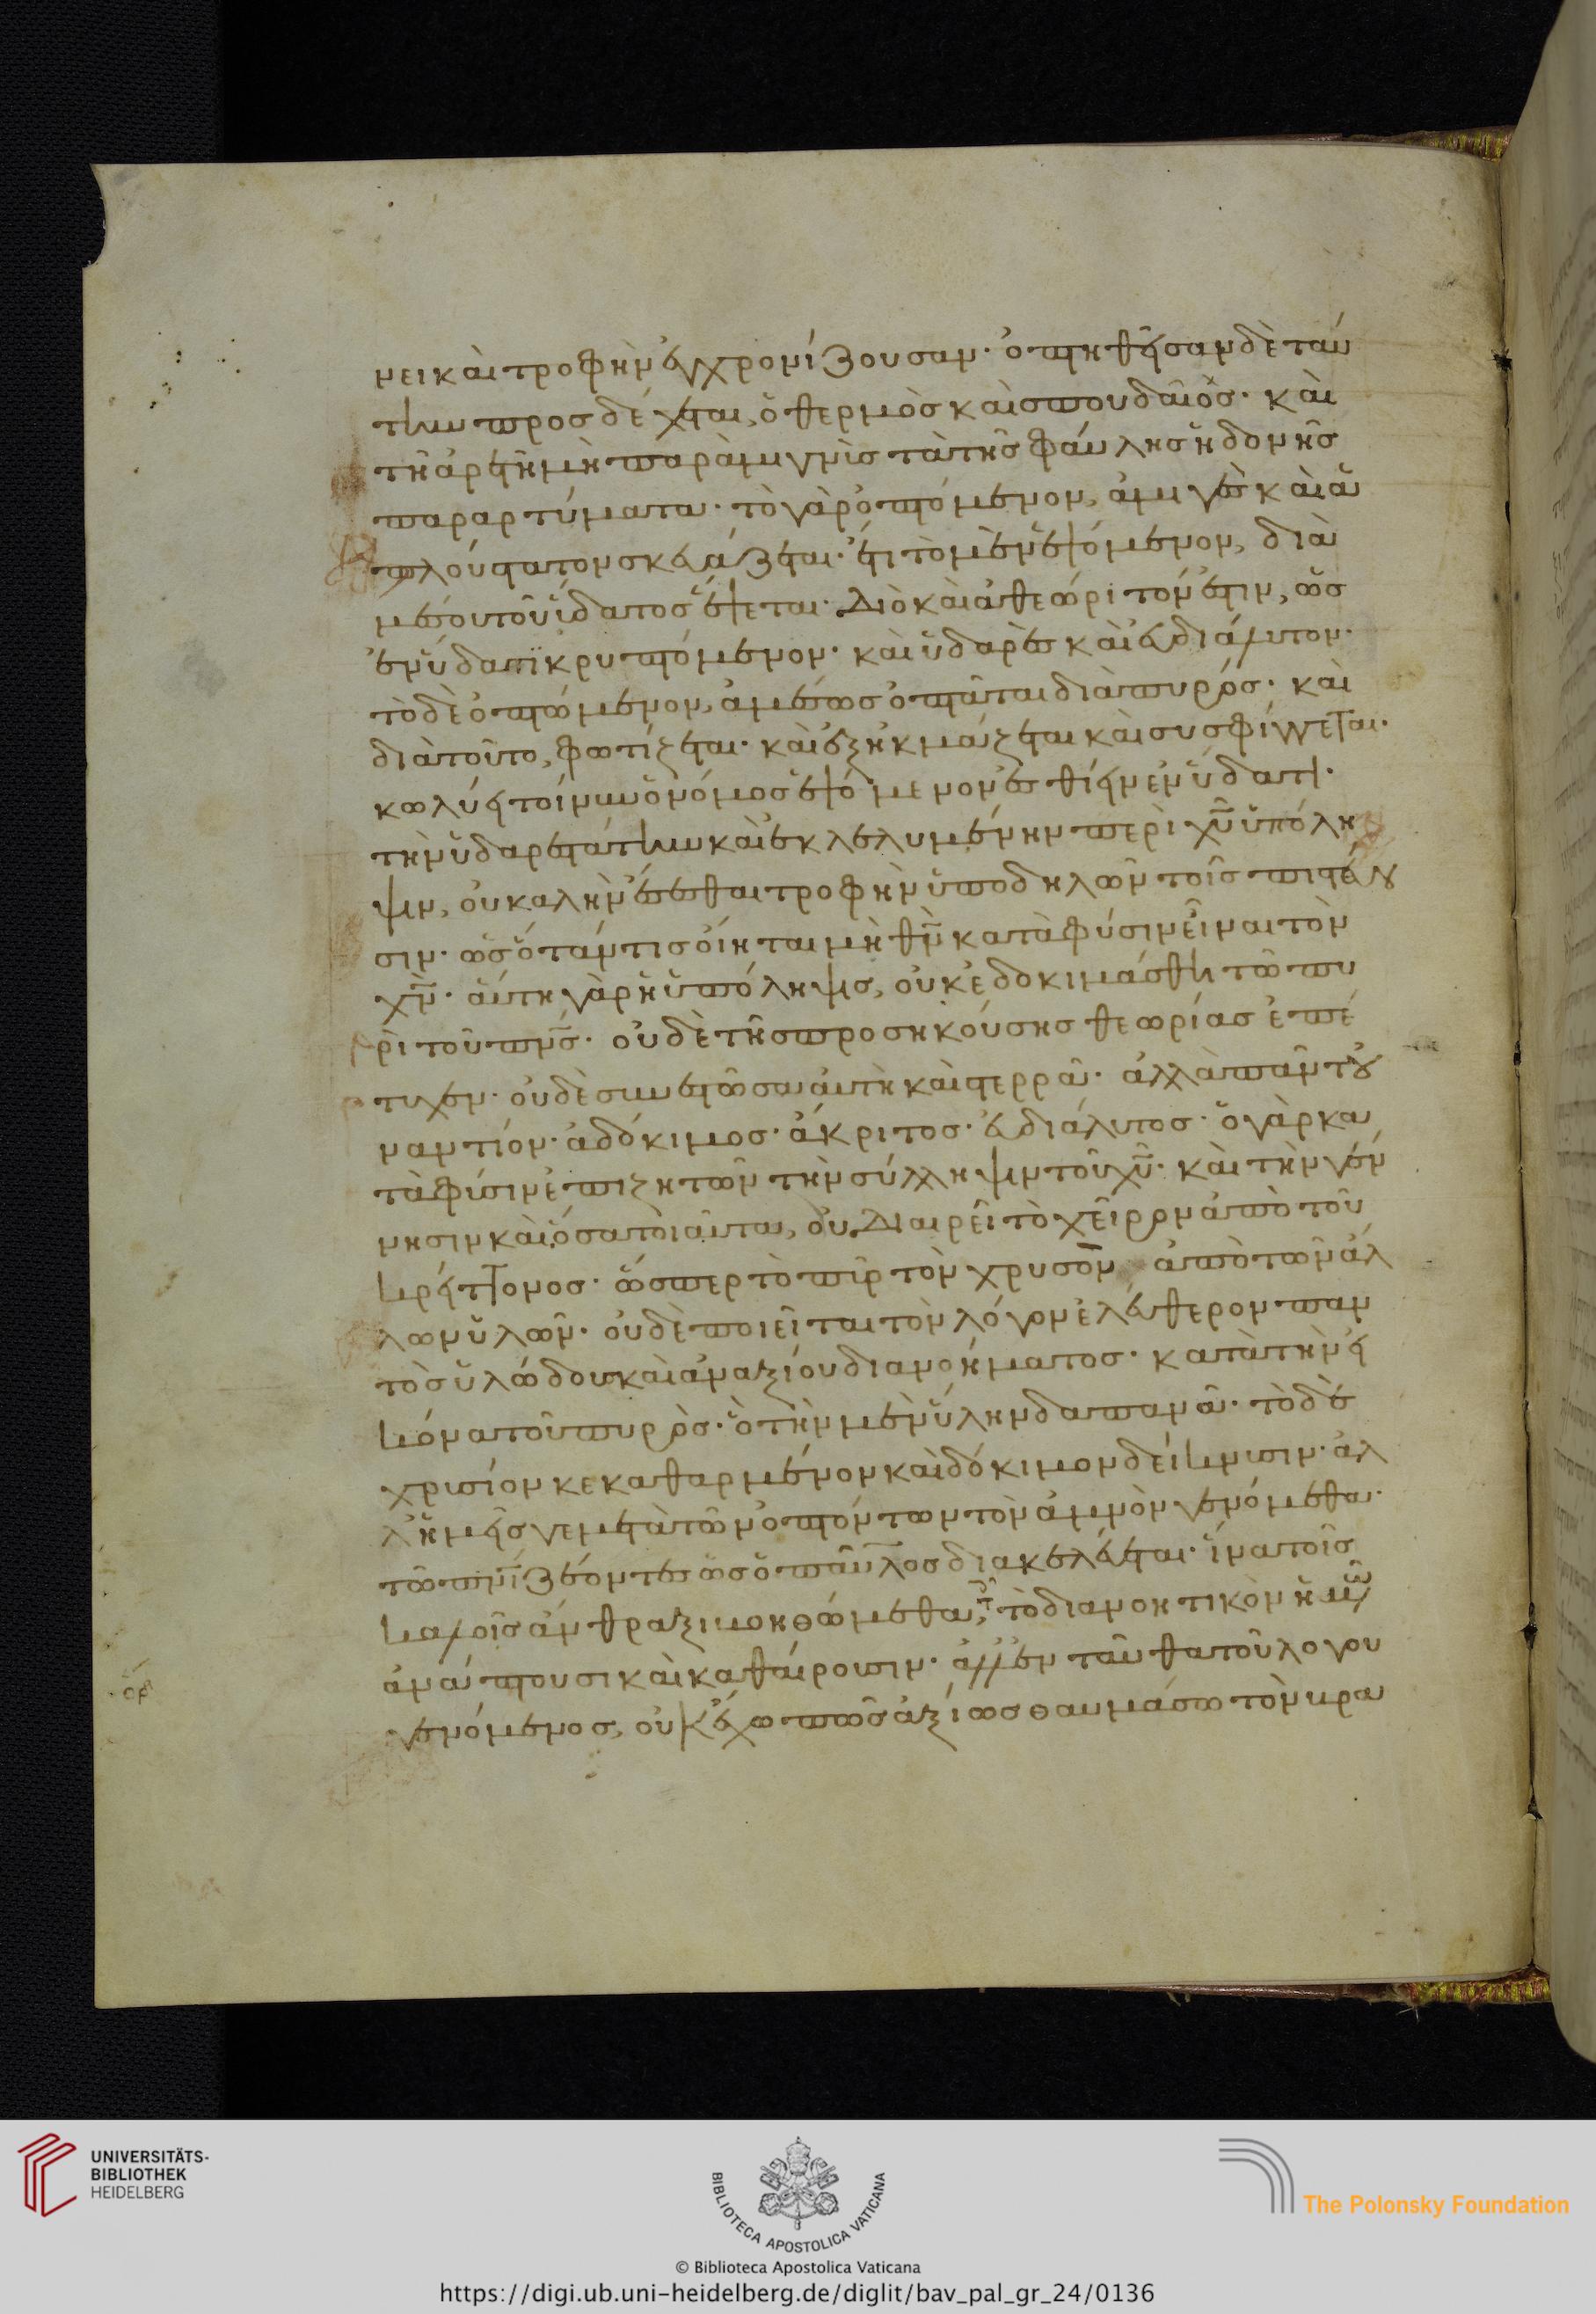 νει καὶ τροφὴν ἐγχρονίζουσαν· ὀπτηθεῖσαν δὲ ταύ
την προσδέχεται, ὁ θερμὸς καὶ σπουδαῖος· καὶ
τῆ ἀρετῆ μὴ παραμιγνὺς τὰ τῆς φαύλης ἡδονῆς
παραρτύματα· τὸ γὰρ ὀπτόμενον, ἀμιγὲς καὶ ἁ
πλούστατον σκευάζεται· ἔτι τὸ μὲν ἑψόμενον, διὰ
μέσου τοῦ ὕδατος ἕψεται· Διὸ καὶ ἀθεώρητόν ἐστιν, ὡς
ἐν ὕδατι κρυπτόμενον· καὶ ὑδαρὲς καὶ εὐδιάλυτον·
τὸ δὲ ὀπτώμενον, ἀμέσως ὀπτᾶται διὰ πυρός· καὶ
διὰ τοῦτο, φωτίζεται· καὶ ἐξικμάζεται καὶ συσφίγγεται·
κωλύει τοίνυν ὁ νόμος ἑψόμενον ἐσθίειν ἐν ὕδατι·
τὴν ὑδαρεστάτην καὶ ἐκλελυμένην περὶ χῦ ὑπόλη
ψιν, οὐ καλὴν ἔσεσθαι τροφὴν ὑποδηλῶν τοῖς πιστεύου
σιν· ὡς ὅταν τις οἴηται μὴ θν κατὰ φύσιν εἶναι τὸν
χν· αὕτη γὰρ ἡ ὑπόληψις, οὐκ ἐδοκιμάσθη τῶ πυ
ρὶ τοῦ πνς· οὐδὲ τῆς προσηκούσης θεωρίας ἐπέ
τυχεν· οὐδὲ συνεστῶσα αὐτὴ καὶ στερρὰ· ἀλλὰ πᾶν τοὐ
ναντίον· ἀδόκιμος· ἄκριτος· εὐδιάλυτος· ὁ γὰρ κα
τὰ φύσιν ἐπιζητῶν τὴν σύλληψιν τοῦ χῦ· καὶ τὴν γέν
νησιν καὶ ὅσα τοιαῦτα, οὐ Διαιρεῖ τὸ χεῖρον ἀπὸ τοῦ
κρείττονος· ὥσπερ τὸ πῦρ τὸν χρυσὸν ἀπὸ τῶν ἄλ
λων ὑλῶν· οὐδὲ ποιεῖται τὸν λόγον ἐλεύθερον παν
τὸς ὑλώδους καὶ ἀναξίου διανοήματος· κατὰ τὴν εἰ
κόνα τοῦ πυρὸς· ὃ τὴν μὲν ὕλην δαπανᾶ· τὸ δὲ
χρυσίον κεκαθαρμένον καὶ δόκιμον δείκνυσιν· ἀλ
λ' ἡμεῖς γε μετὰ τῶν ὀπτόντων τὸν ἀμνὸν γενόμεθα·
τῶ πνι ζέοντες ὡς ὁ παῦλος διακελεύεται· ἵνα τοῖς
καλοῖς ἄνθραξι βοηθώμεθα, οἳ τὸ διανοητικὸν ἡμῶν
ἀνάπτουσι καὶ καθαίρουσιν· ἀλλ' ἐνταῦθα τοῦ λόγου
γενόμενος, οὐκ ἔχω πῶς ἀξίως θαυμάσω τὸν κρα